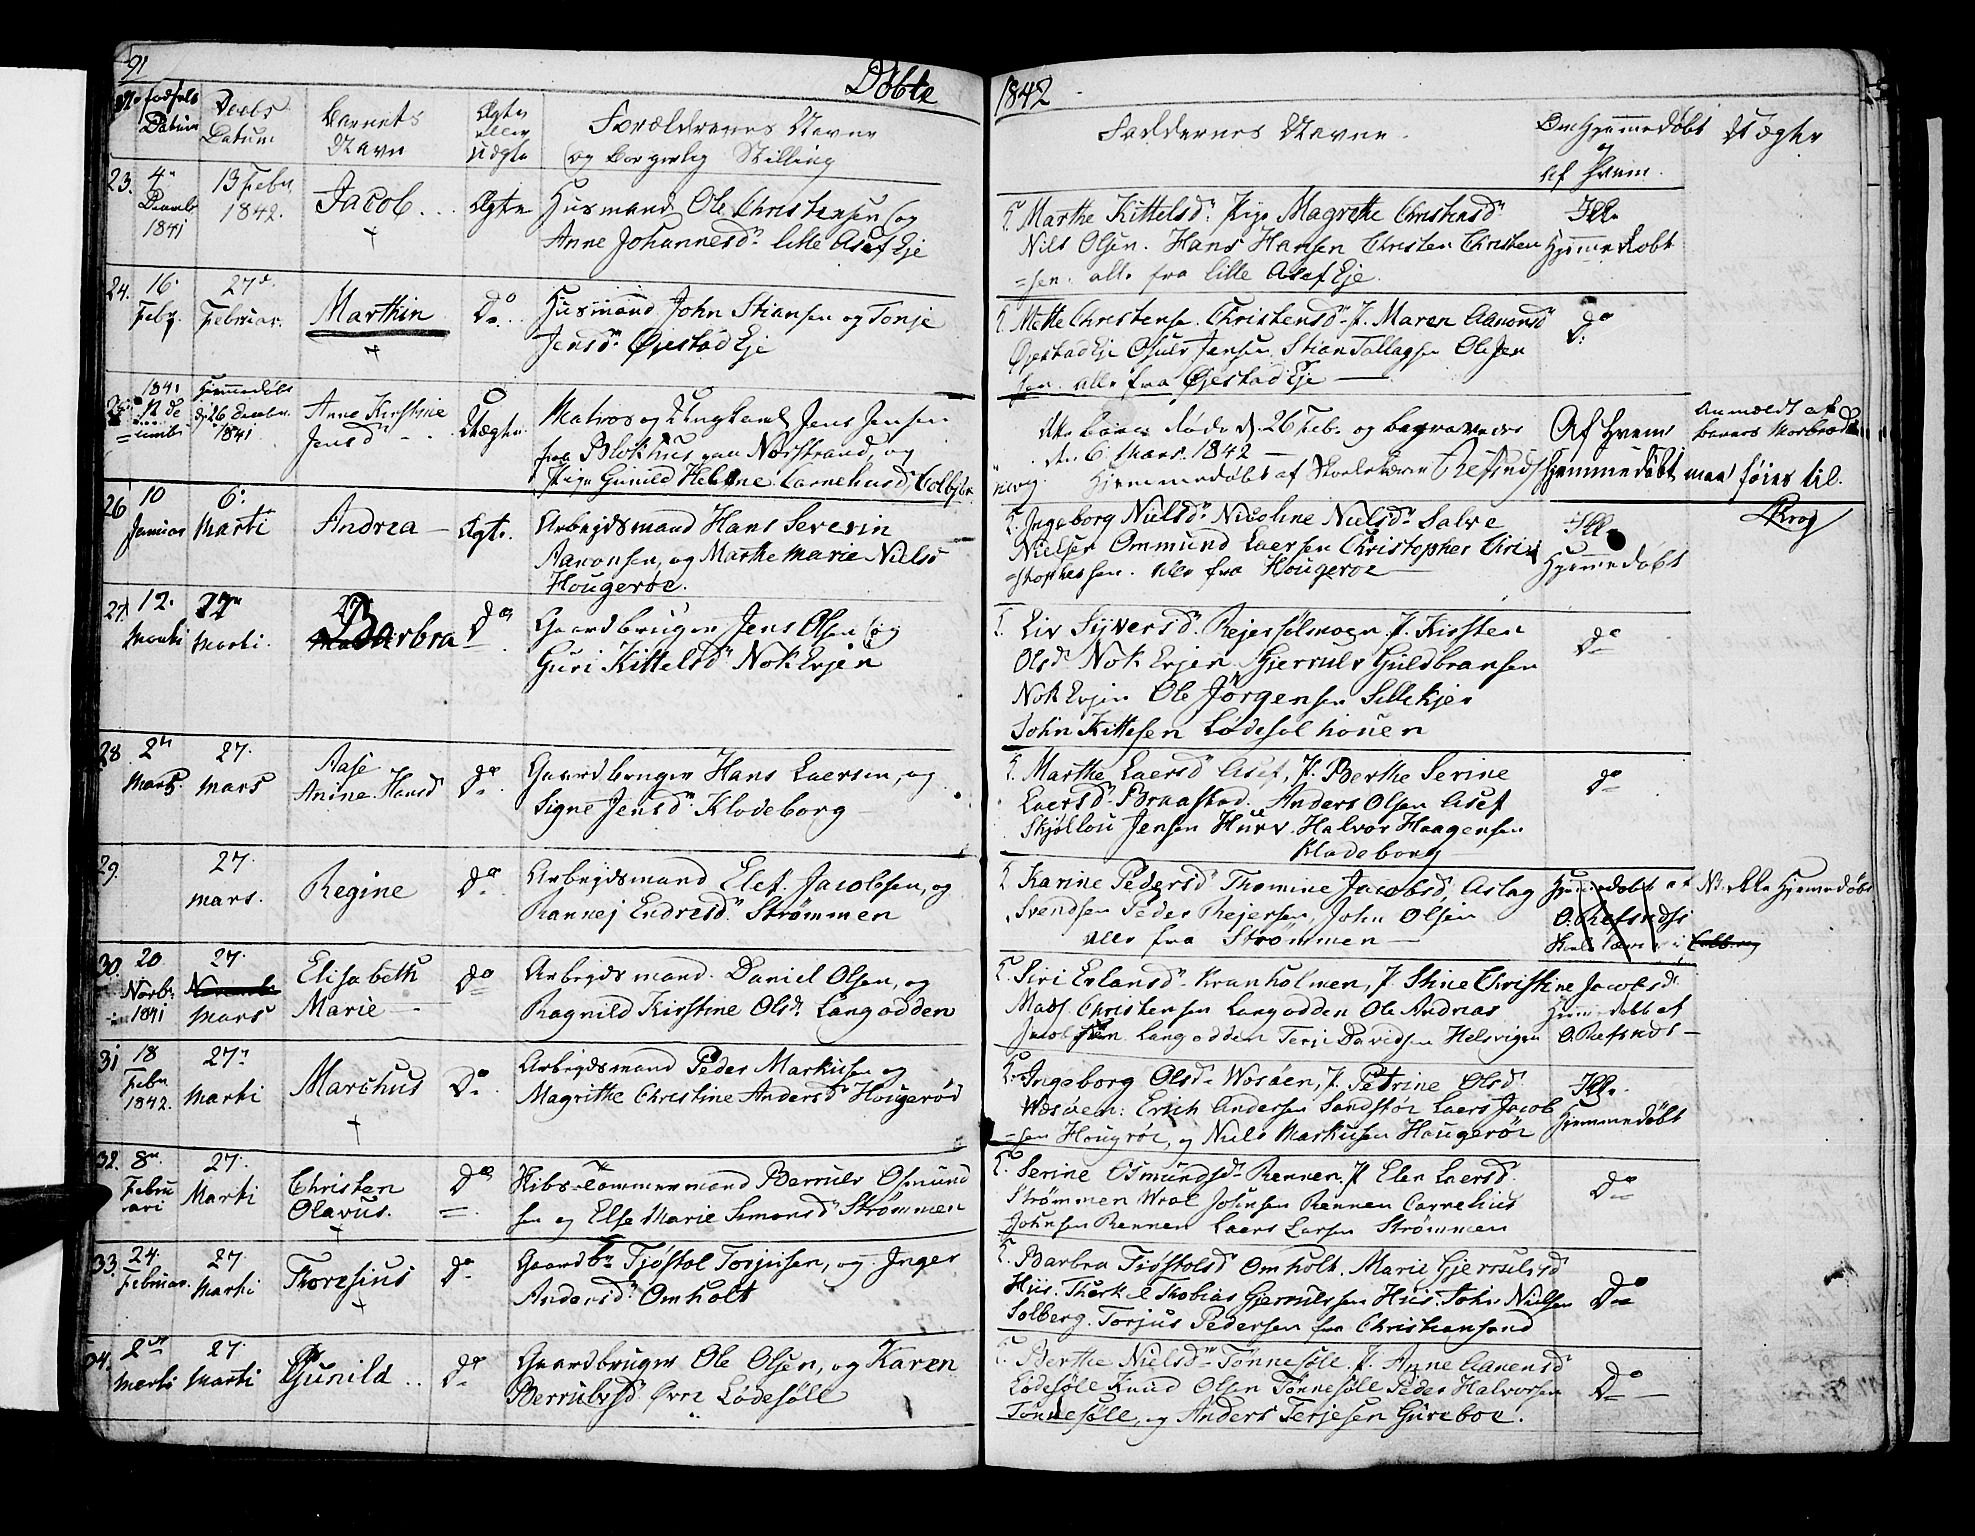 91
Döbte
1842
No Fødsels Datum
Daabs Datum
Barnets Navn
Ægte eller Uægte
Forældrenes Navne
og borgerlig Stilling
Faddernes Navne
Om Hjemmedøbt
af Hvem
23. 4de Decemb. 1841
13 Febr. 1842.
Jacob
Ægte
Husmand Ole Christensen og
Anne Johannesdr lille Asef Eje
Marthe Kittelsdr Pige Magrethe Christensdr
Nils Olsen. Hans Hansen Christen Christen
=sen. alle fra lille Asef Eje
Ikke
Hjemmedøbt
24. 16. Febr.
27de Februar.
Marthin
Do
Husmand John Stiansen og Tonje
Jensdr Øjestad Eje
Mette Christense Christensdr P. Maren Aanonsdr
Øjestad Eje Osuls Jensen Stian Tallagsen Ole Jen
sen. alle fra Øjestad Eje
Do
25. 1841 12 De
=cember
Hjemmedøbt d. 26 Decbr. 1841
Anne Kirstine
Jensdr
Uægte
Matros og Ungkarl Jens Jensen
fra Blokhus paa Norstrand, og
Pige Gunild Helene Corneliusdr Colbjbr.
døde d. 26 Feb. og begravedes
den 6. Mars. 1842
Hjemmedøbt af Skolelærer Refsnds
Af Hvem
Hjemmedøbt maa føies til.
Anmeldt af
Barnets Morbroder
Krog
26 10 Januar
6. Marti
Andrea
Ægte.
Arbejdsmand Hans Severin
Aanonsen, og Marthe Marie Niels
Hougerøe.
Ingeborg Nielsdr Nicoline Nielsdr Salve
Nielsen Ommund Laersen Christopher Chris
=stophersen. alle fra Hougeroe
Ikke
Hjemmedøbt
27. 12. Marti
27 Marti.
Barbra
Do
Gaardbruger Jens Olsen og
Guri Kittelsdr Nok Evjen
Liv Sijversd. Rejersølmoen. P. Kirsten
Olsdr Nok Evjen. Gjerruls Guldbransen
Nok Evjen Ole Jörgensen Sellekjer
John Kittesen Lødesol houen
Do
28 2den Mars.
27. Mars
Aase
Anine Hansd
Do
Gaardbruger Hans Laersen, og
Signe Jensdr Klodeborg
Marthe Laersd Asef, P. Berthe Serine
Laersd. Braastad. Anders Olsen Asef
Skjøllou Jensen Hurv. Halvor Haagensen
Klodeborg
Do
29.
27. Mars.
Regine
Do
Arbejdsmand Elef. Jacobsen, og
Rannej Endresdr Strømmen
Karine Pedersd Thomine Jacobsd, Aslag
Svendsen Peder Rejersen, John Olsen
alle fra Strømmen
Hjemmedøbt af
O. Refsnds
Nb. ikke Hjemmedøbt
30. 20 Novbr. 1841
27. Mars
Elisabeth
Marie
Do
Arbejdsmand. Daniel Olsen, og
Ragnild Kirstine Olsdr Langodden
Siri Erlansdr Kranholmen, P. Stine Christine Jacobsdr
Mads Christensen Langodden Ole Andreas
Jacobsen Langodden Terje Davidsen Helsvigen
Hjemmedøbt af
O. Refsnds
31 18 Febr. 1842.
27. Marti
Marchus
Do
Arbejdsmand Peder Markusen og
Magrithe Christine Andersdr Hougerøe
Ingeborg Olsdr Wosøen, P. Petrine Olsd
Wosøen: Erich Andersen Sandstøe Laers Jacob
=sen Hougrøe, og Niels Markusen Hougerøe
Ikke
Hjemmedøbt
32. 8de Februari
27. Marti
Christen
Olavus.
Do
Skibs-Tømmermand Berruls Osmund
sen og Else Marie Simonsd Strømmen
Serine Osmundsdr Rennen. P. Elen Laersd.
Strømmen Wroe Johnsen Rennen Cornelius
Johnsen Rennen Laers Larsen Strømmen
Do
33. 24. Februar.
27 Marti
Thoresius
Do
Gaardbr Tjøstol Torjusen, og Inger
Andersdr Omholt
Barbra Tiöstolsd Omholt. Marie Gjerrulsd
Hiis. Therkel Thobias Gjerrulssen Hiis. John Nielsen
Solberg. Torjus Pedersen fra Christiansand
Do
34. 2den Marti
27. Marti
Gunild
Do
Gaardbruger Ole Olsen, og Karen
Berrulvsd Øvre Lödesöll
Berthe Nielsdr Tønnesøll. P. Anne Aanensdr
Lødesøll Knud Olsen Tönnesöll Peder Halvorsen
Tönnesöll, og Anders Terjesen Gureboe.
Do